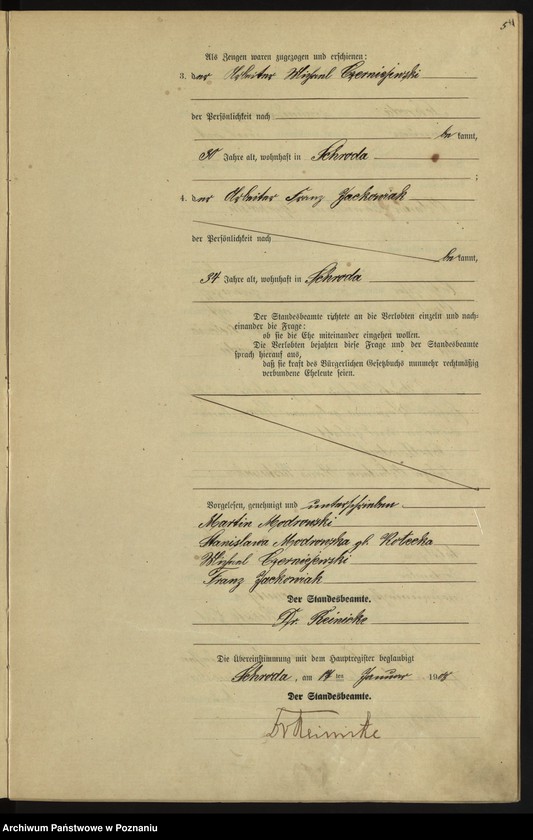 54
Als Zeugen waren zugezogen und erschienen:
3. der Arbeiter Michael Czerniejewski
der Persönlichkeit nach
be kannt,
30 Jahre alt, wohnhaft in Schroda
;
4. der Arbeiter Franz Jackowiak
der Persönlichkeit nach
be kannt,
34 Jahre alt, wohnhaft in Schroda
Der Standesbeamte richtete an die Verlobten einzeln und nach-
einander die Frage:
ob sie die Ehe miteinander eingehen wollen.
Die Verlobten bejahten diese Frage und der Standesbeamte
sprach hierauf aus,
daß sie kraft des Bürgerlichen Gesetzbuchs nunmehr rechtmäßig
verbundene Eheleute seien.
Vorgelesen, genehmigt und unterschrieben
Martin Modrowski
Stanislawa Modrowska gb. Kotecka
Michael Czerniejewski
Franz Jackowiak
Der Standesbeamte.
Dr. Reinicke
Die Übereinstimmung mit dem Hauptregister beglaubigt
Schroda, am 14 ten Januar 1918
Der Standesbeamte.
Dr Reinicke
Archiwum Państwowe w Poznaniu